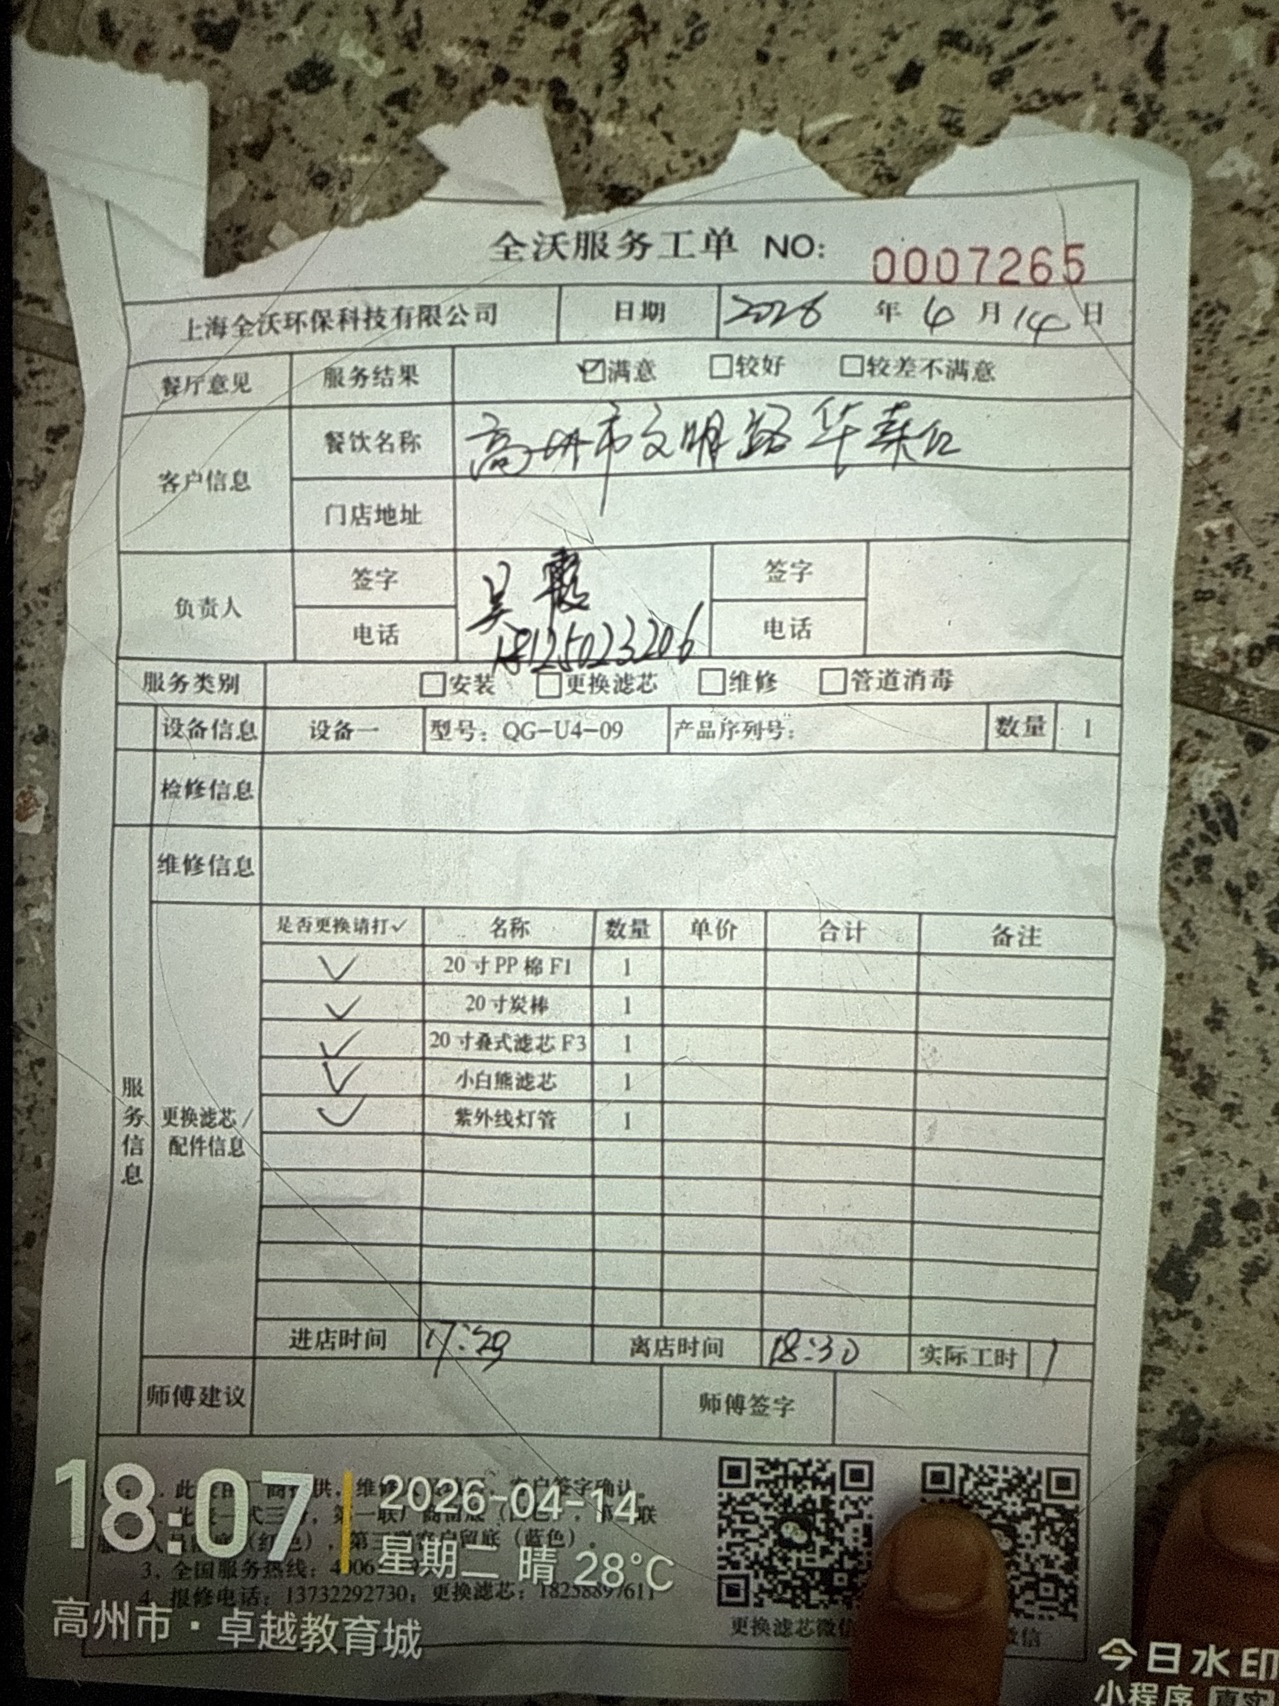 全沃服务工单 NO: 0007265
上海全沃环保科技有限公司 日期 2026 年 4 月 14 日
餐厅意见 服务结果 ☑满意 □较好 □较差不满意
客户信息 餐饮名称 高州市文明路华莱士
门店地址
负责人 签字 吴霞 签字
电话 18125023206 电话
服务类别 □安装 □更换滤芯 □维修 □管道消毒
设备信息 设备一 型号: QG-U4-09 产品序列号: 数量 1
检修信息
维修信息
服务信息
更换滤芯/
配件信息
是否更换请打✓ 名称 数量 单价 合计 备注
✓ 20寸PP棉F1 1
✓ 20寸炭棒 1
✓ 20寸叠式滤芯F3 1
✓ 小白熊滤芯 1
✓ 紫外线灯管 1
进店时间 17:29 离店时间 18:30 实际工时 1
师傅建议 师傅签字
客户签字确认。
第一联
留底(蓝色)。
3、全国服务热线: 4006
4、报修电话: 13732292730; 更换滤芯: 18258897611
更换滤芯微信
微信
18:07
2026-04-14
星期二 晴 28°C
高州市·卓越教育城
今日水印
小程序